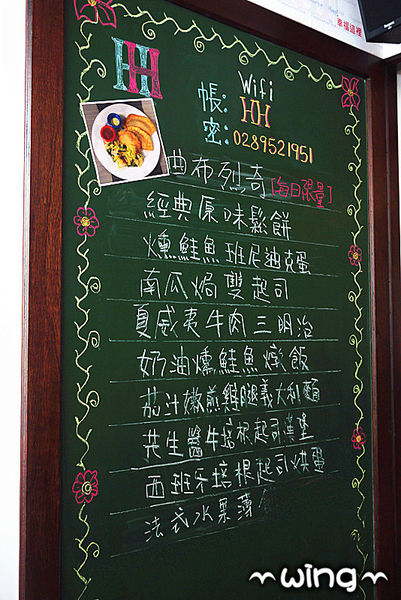 幸福這裡
HH
Wifi
帳: HH
密: 0289521951
曲布烈奇 [每日限量]
經典原味鬆餅
燻鮭魚班尼迪克蛋
南瓜焗雙起司
夏威夷牛肉三明治
奶油燻鮭魚燉飯
茄汁嫩煎雞腿義大利麵
花生醬牛培根起司漢堡
西班牙培根起司烘蛋
法式水果薄
~wing~